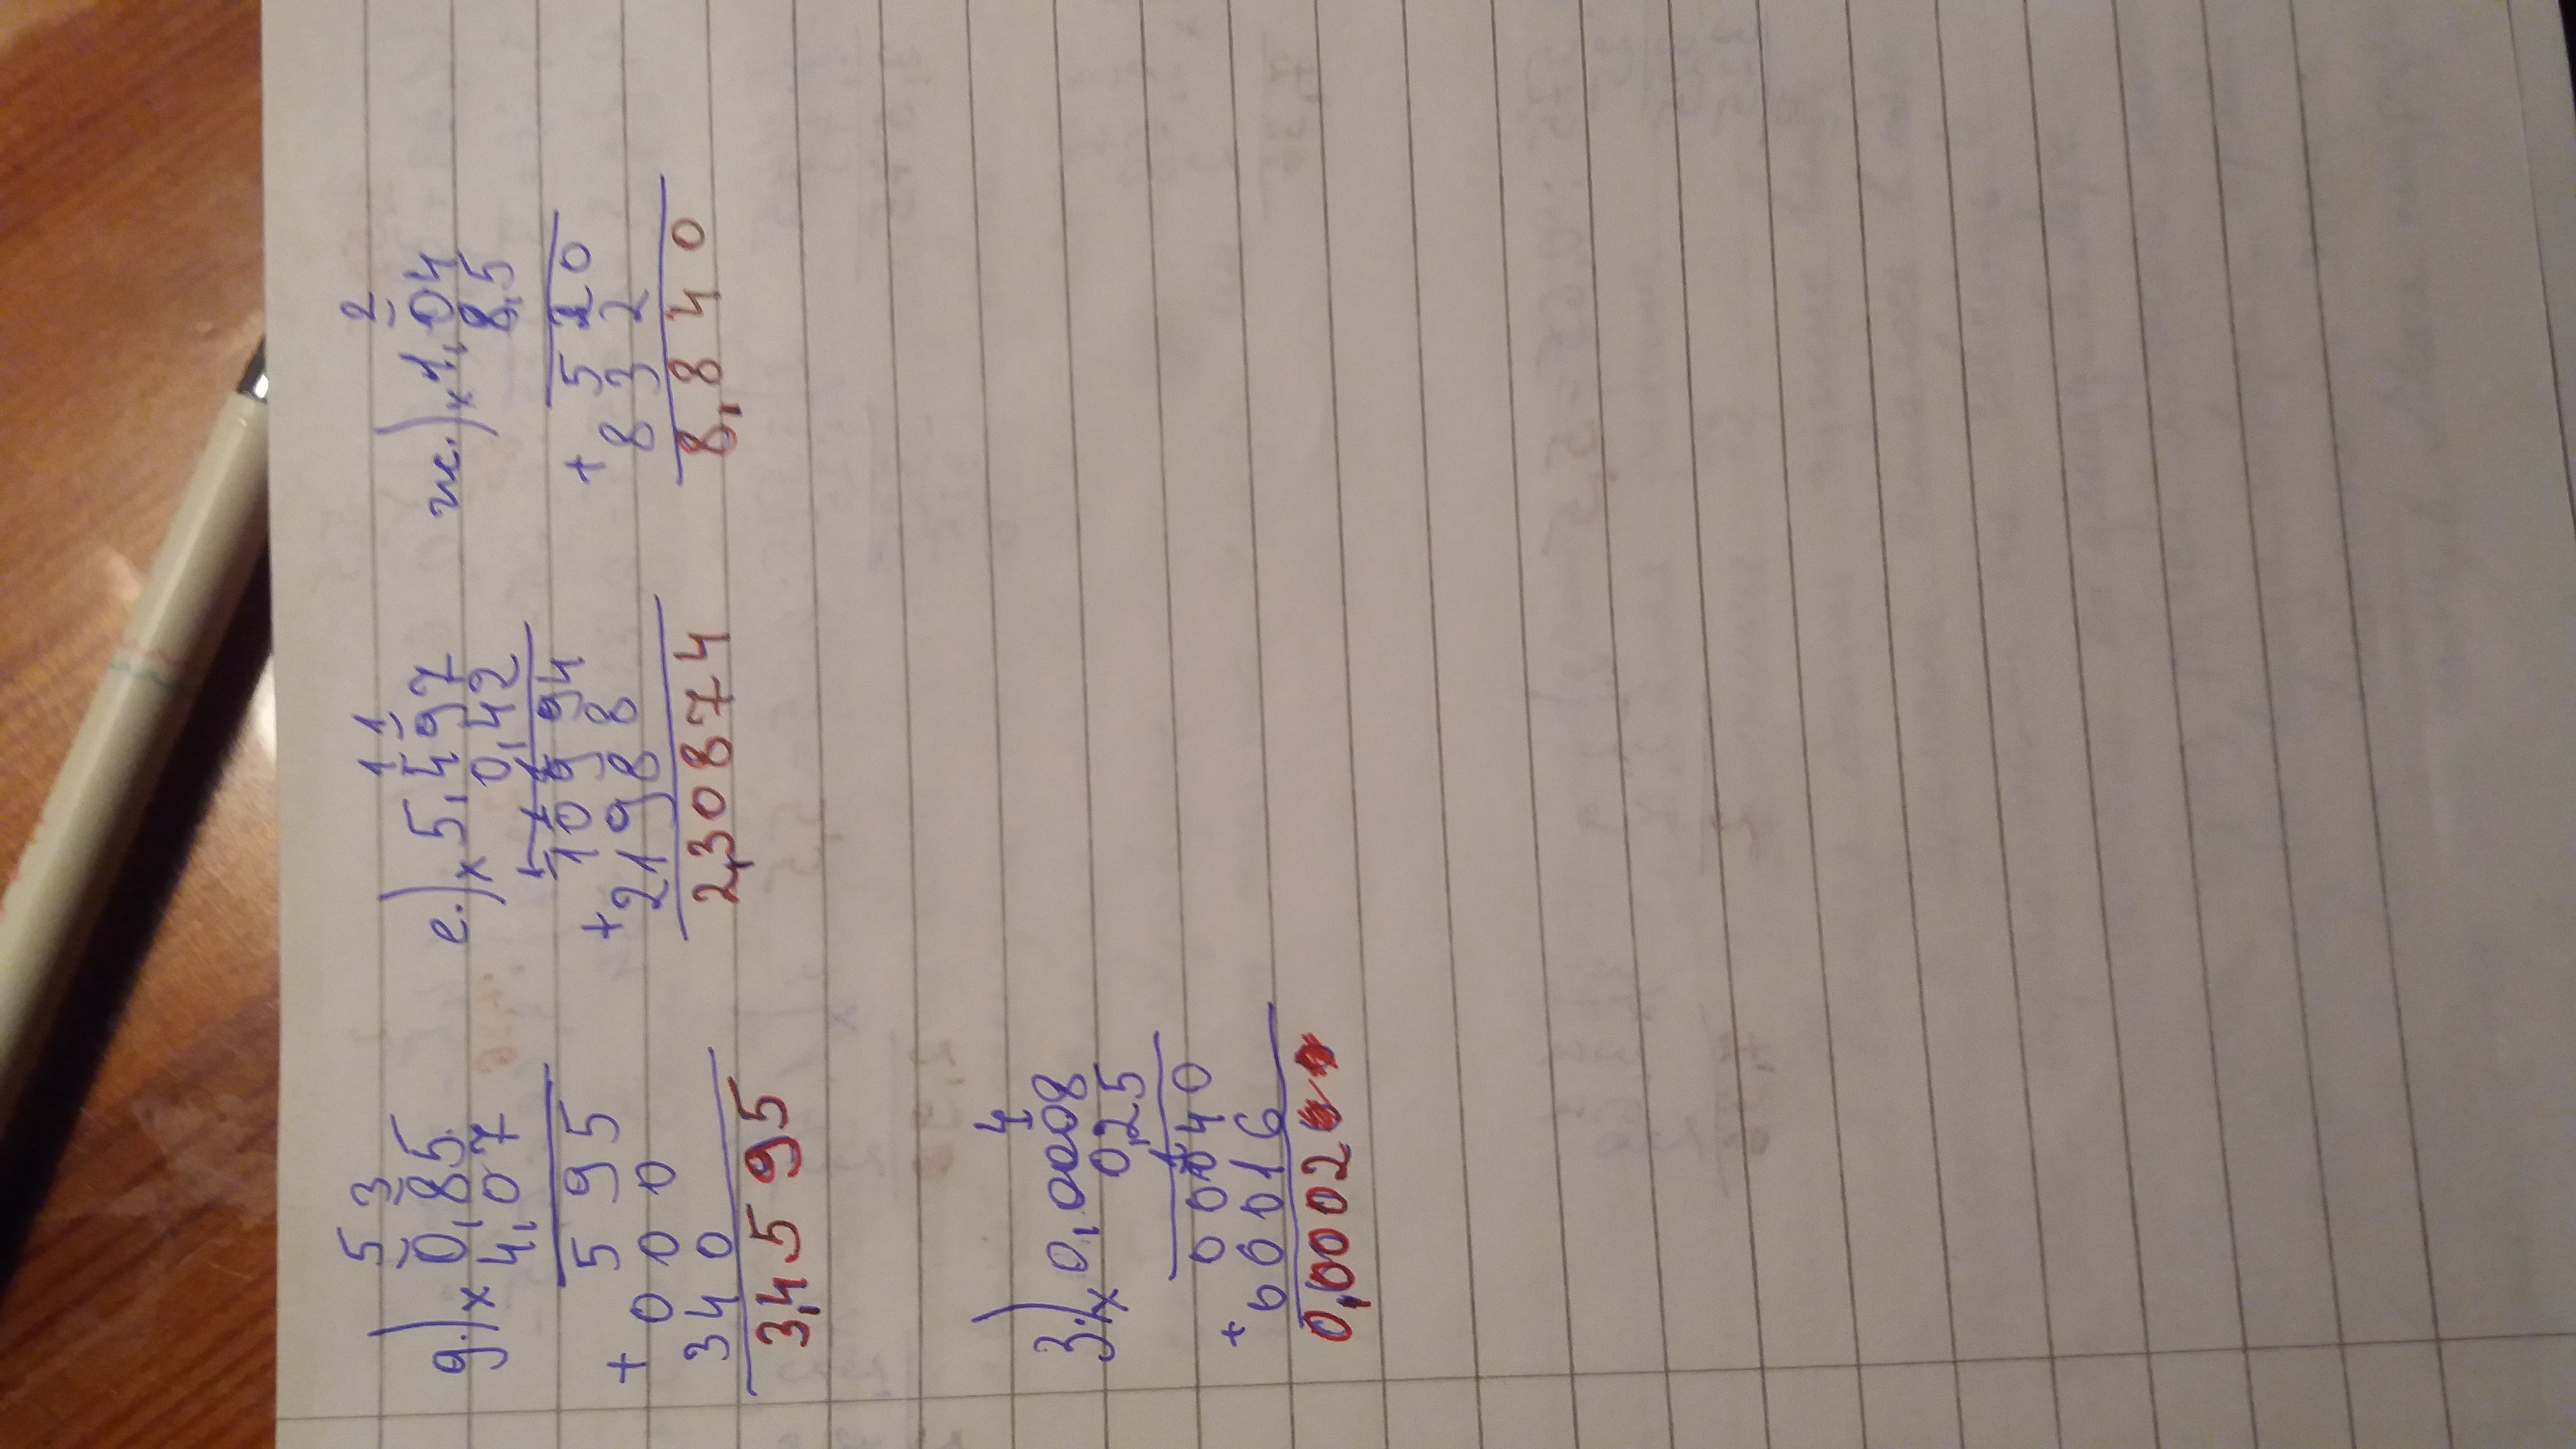 5 3
д.) x 0,85
4,07
5 9 5
+ 0 0 0
3 4 0
3,4 5 9 5
1 1
е.) x 5,497
0,42
10994
+ 21988
2,30874
2
ж.) x 1,04
8,5
5 2 0
+ 8 3 2
8,8 4 0
4
з.) x 0,0008
0,25
0 0040
+ 0 0016
0,0002